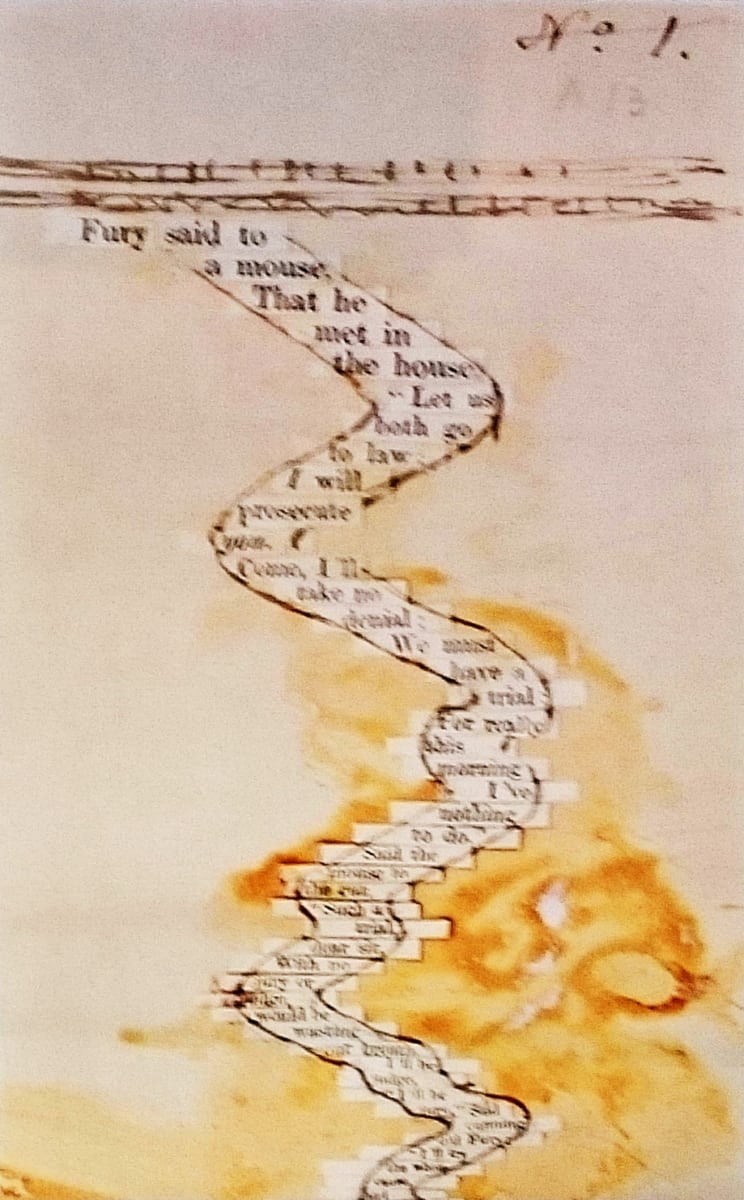 No 1.
A 13
Fury said to
a mouse,
That he
met in
the house
"Let us
both go
to law:
I will
prosecute
you.
Come, I'll
take no
denial:
We must
have a
trial
For really
this
morning
I've
nothing
to do."
Said the
mouse to
the cur,
"Such a
trial
dear sir,
With no
jury or
judge,
would be
wasting
our breath."
I'll be
judge,
I'll be
jury," Said
cunning
old Fury;
"I'll try
the whole
cause